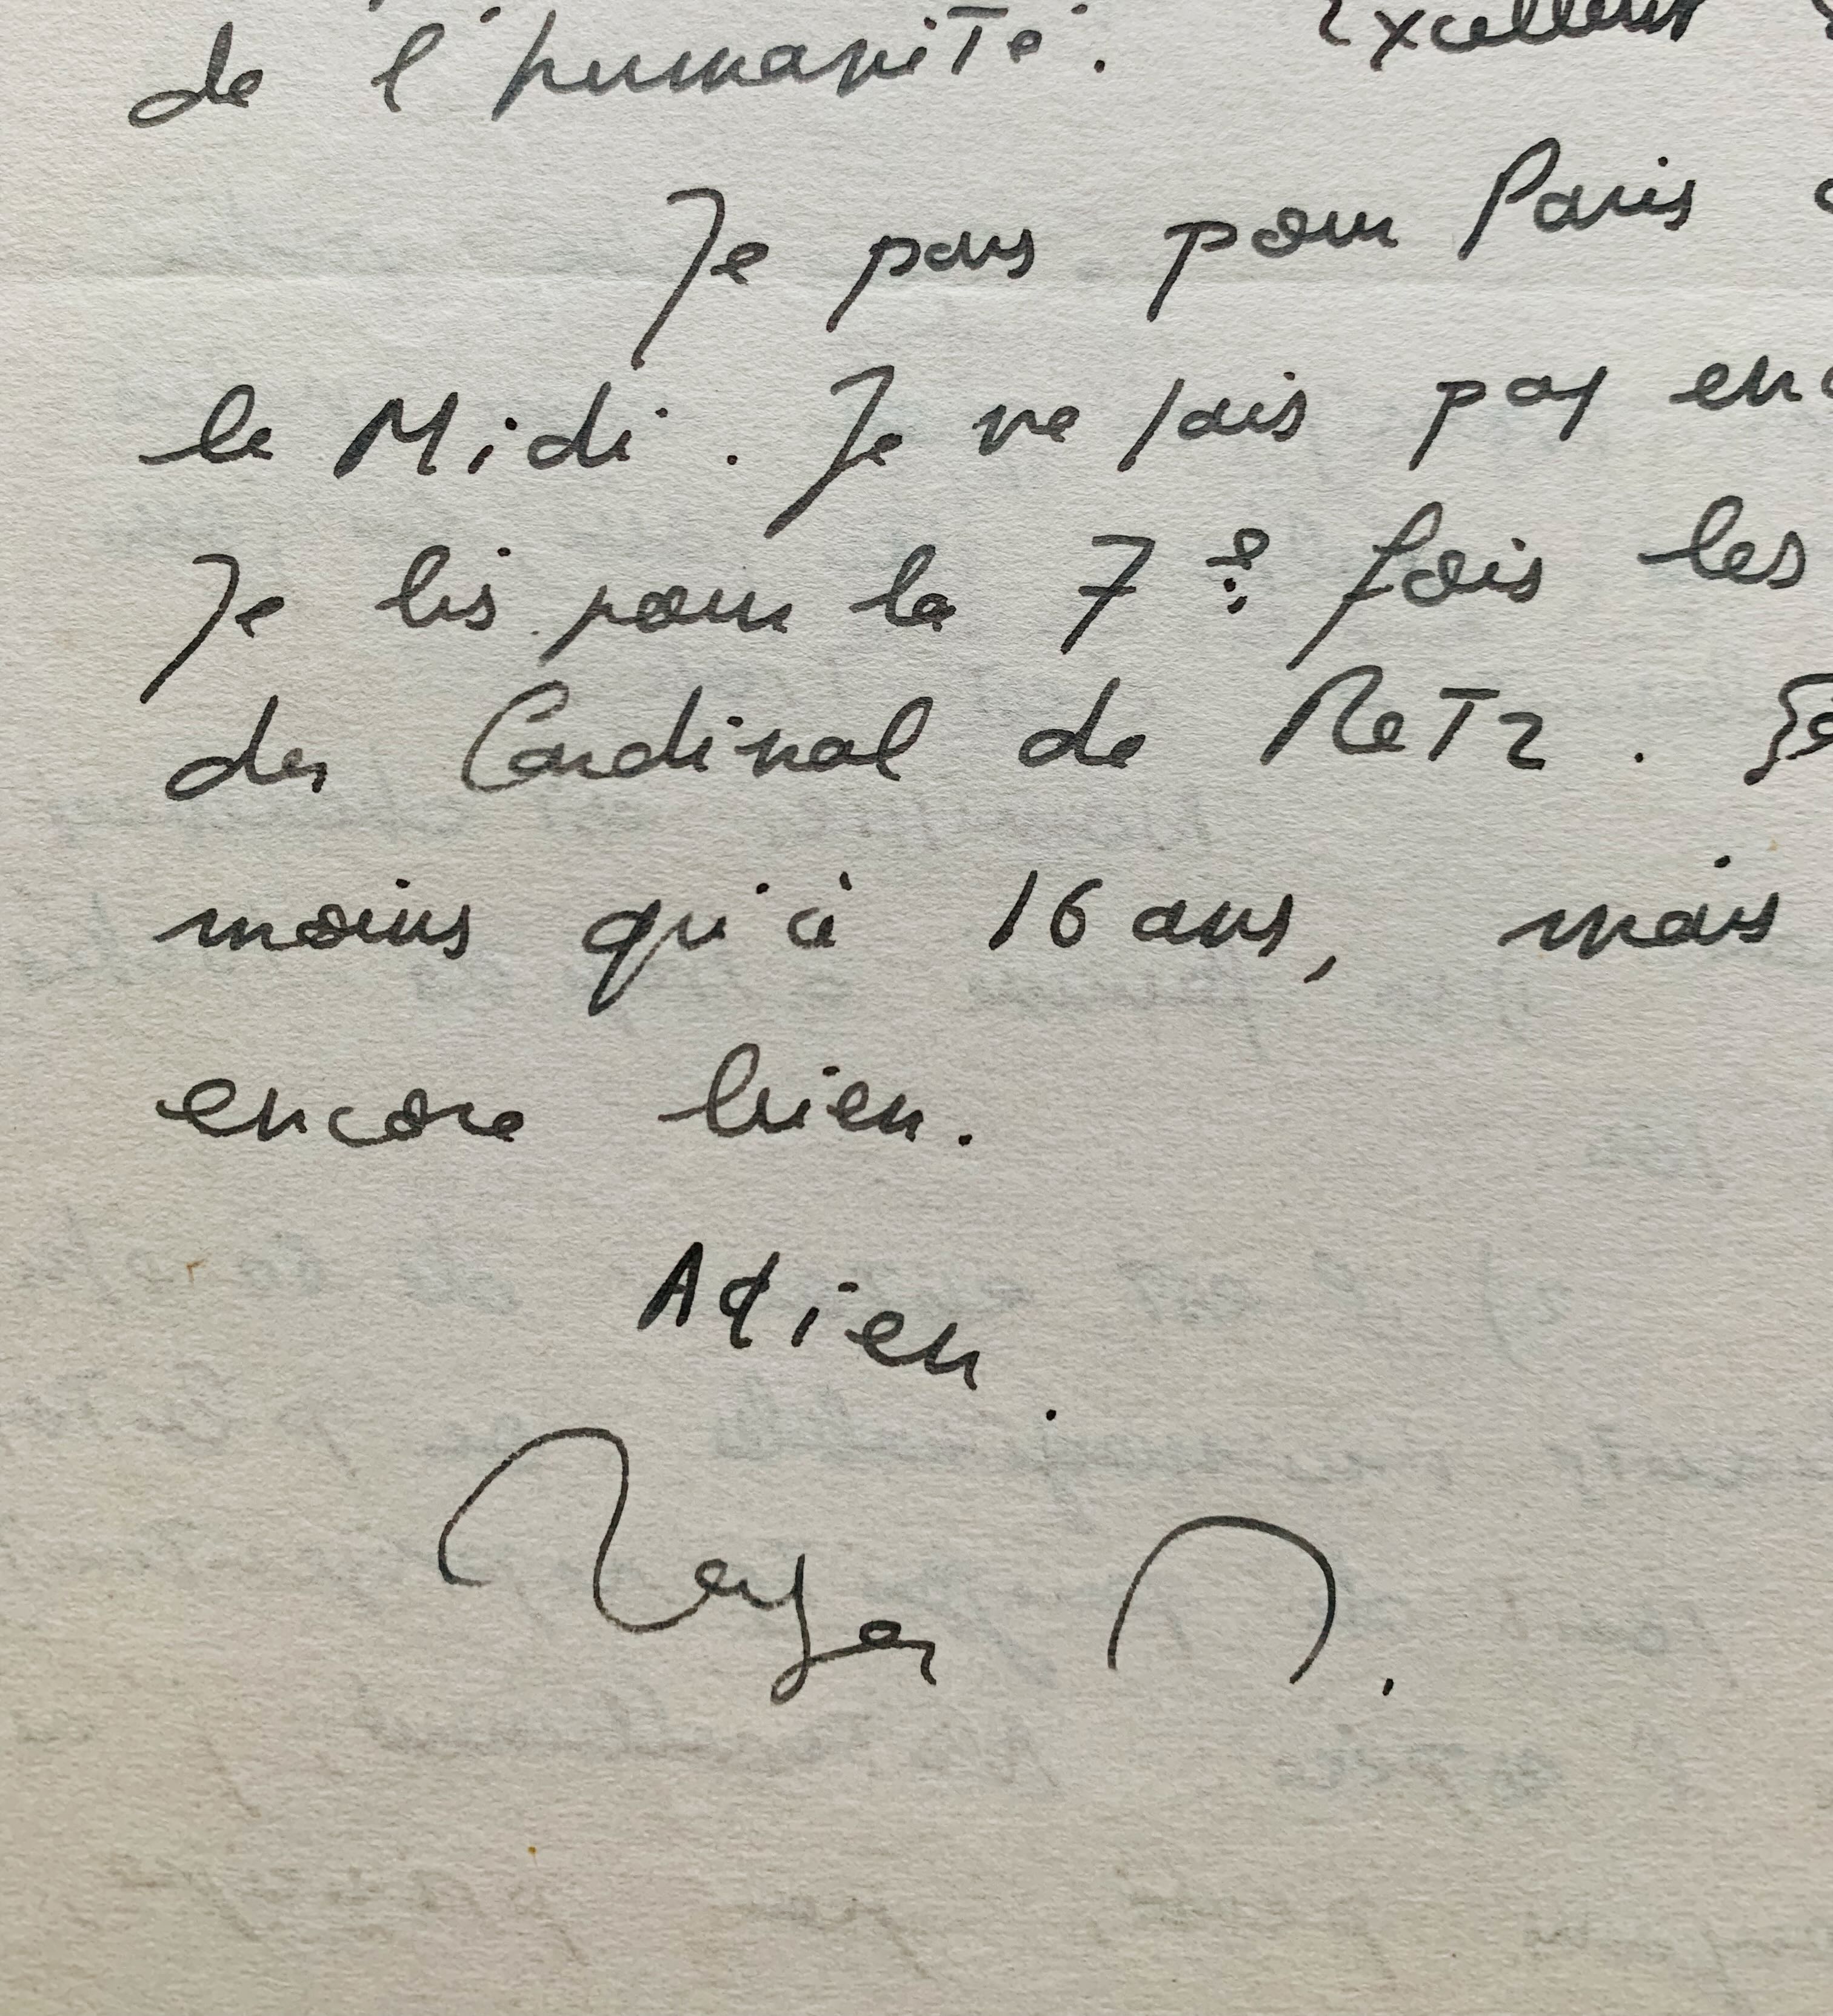 de l'humanité. Excellent
Je pars pour Paris
le Midi. Je ne sais pas enc
Je lis pour la 7e fois les
du Cardinal de Retz.
moins qu'à 16 ans, mais
encore bien.
Adieu.
Roger N.